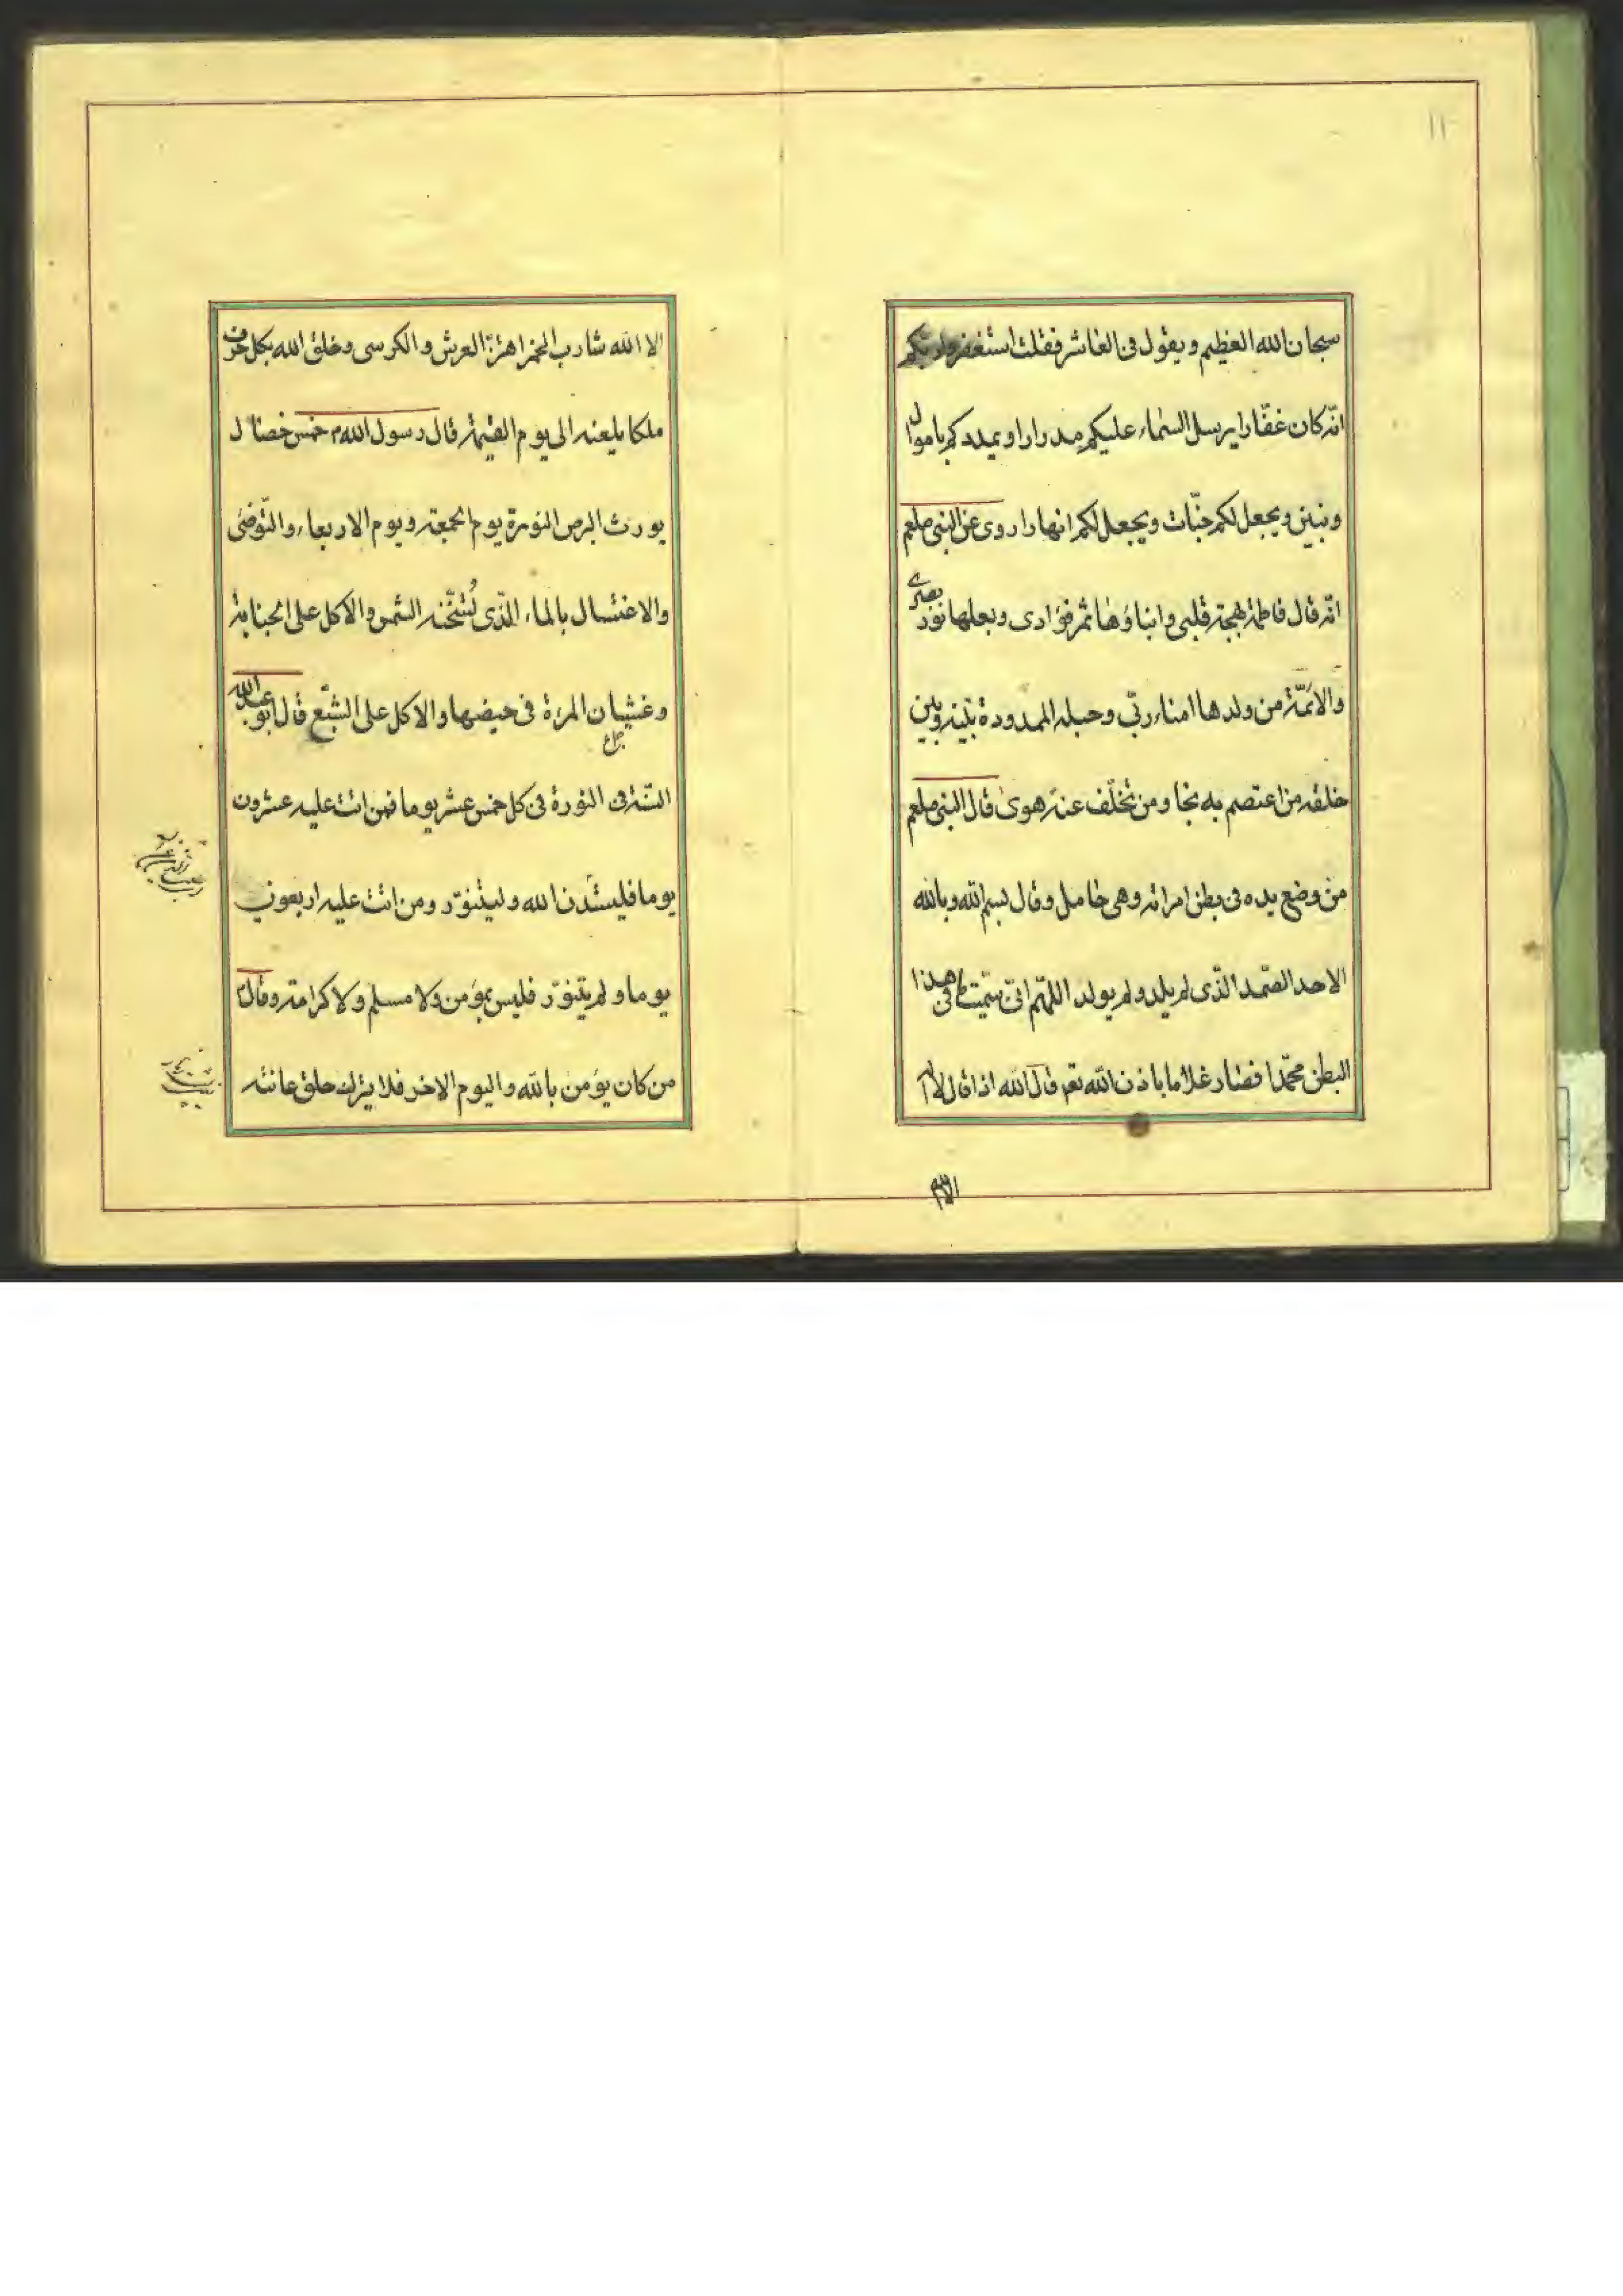 ١١
سبحان الله العظيم ويقول فى العاشر فقلت استغفروا ربّكم
انّه كان غفّارا يرسل السّماء عليكم مدرارا ويمددكم باموال
وبنين ويجعل لكم جنّات ويجعل لكم انهارا روى عن النبى صلعم
انّه قال فاطمة بهجة قلبى وابناؤها ثمر فؤادى وبعلها نور بصرى
والائمّة من ولدها امناء ربّى وحبله الممدودة بينه وبين
خلقه من اعتصم به نجا ومن تخلّف عنه هوى قال النبى صلعم
من وضع يده فى بطن امراته وهى حامل وقال بسم الله وبالله
الاحد الصّمد الذّى لم يلد ولم يولد اللهّم انّى سمّيت ما فى هذا
البطن محمّدا فصار غلاما باذن الله تعم قال الله اذا قال لا اله
الا الله شارب الخمر اهتزّ العرش والكرسى وخلق الله بكل حرف
ملكا يلعنه الى يوم القيمة قال رسول الله م خمس خصال
يورث البرص النورة يوم الجمعة ويوم الاربعاء والتّوضّى
والاغتسال بالماء الذّى تُسّخّنه الشمس والاكل على الجنابة
وغشيان المرءة فى حيضها والاكل على الشّبع قال ابو عبد الله
السّنّة فى النورة فى كل خمس عشر يوما فمن اتت عليه عشرون
يوما فليستدن الله وليتنوّر ومن اتت عليه اربعون
يوما ولم يتنوّر فليس بمؤمن ولا مسلم ولا كرامة وقال
من كان يؤمن بالله واليوم الاخر فلا يترك حلق عانته